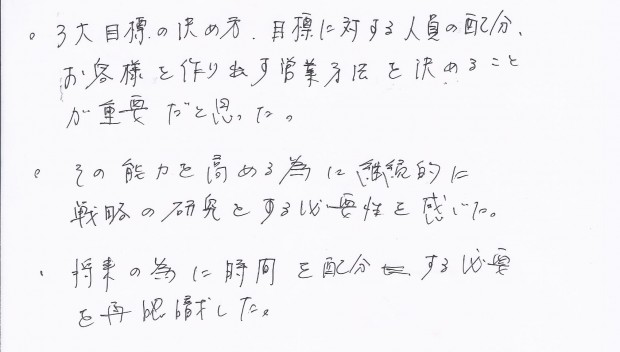 。3大目標の決め方、目標に対する人員の配分、
お客様を作り出す営業方法を決めること
が重要だと思った。
。その能力を高める為に継続的に
戦略の研究をする必要性を感じた。
・将来の為に時間を配分する必要
を再認識した。